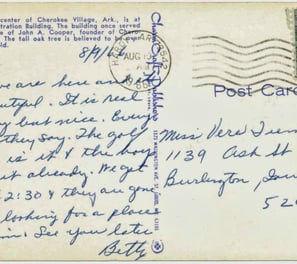 center of Cherokee Village, Ark., is at
tration Building. The building once served
e of John A. Cooper, founder of Chero-
The tall oak tree is believed to be over
ld.
8/9/66
we are here and
utiful. It is real
y but nice. Every
they say. The golf
is it & the hou
ut already. We get
2:30 & they are gone
looking for a place
in. See you later
Betty
AUG 10
Post Card
Miss Vera
1139 Ash St
Burlington, Iowa
52